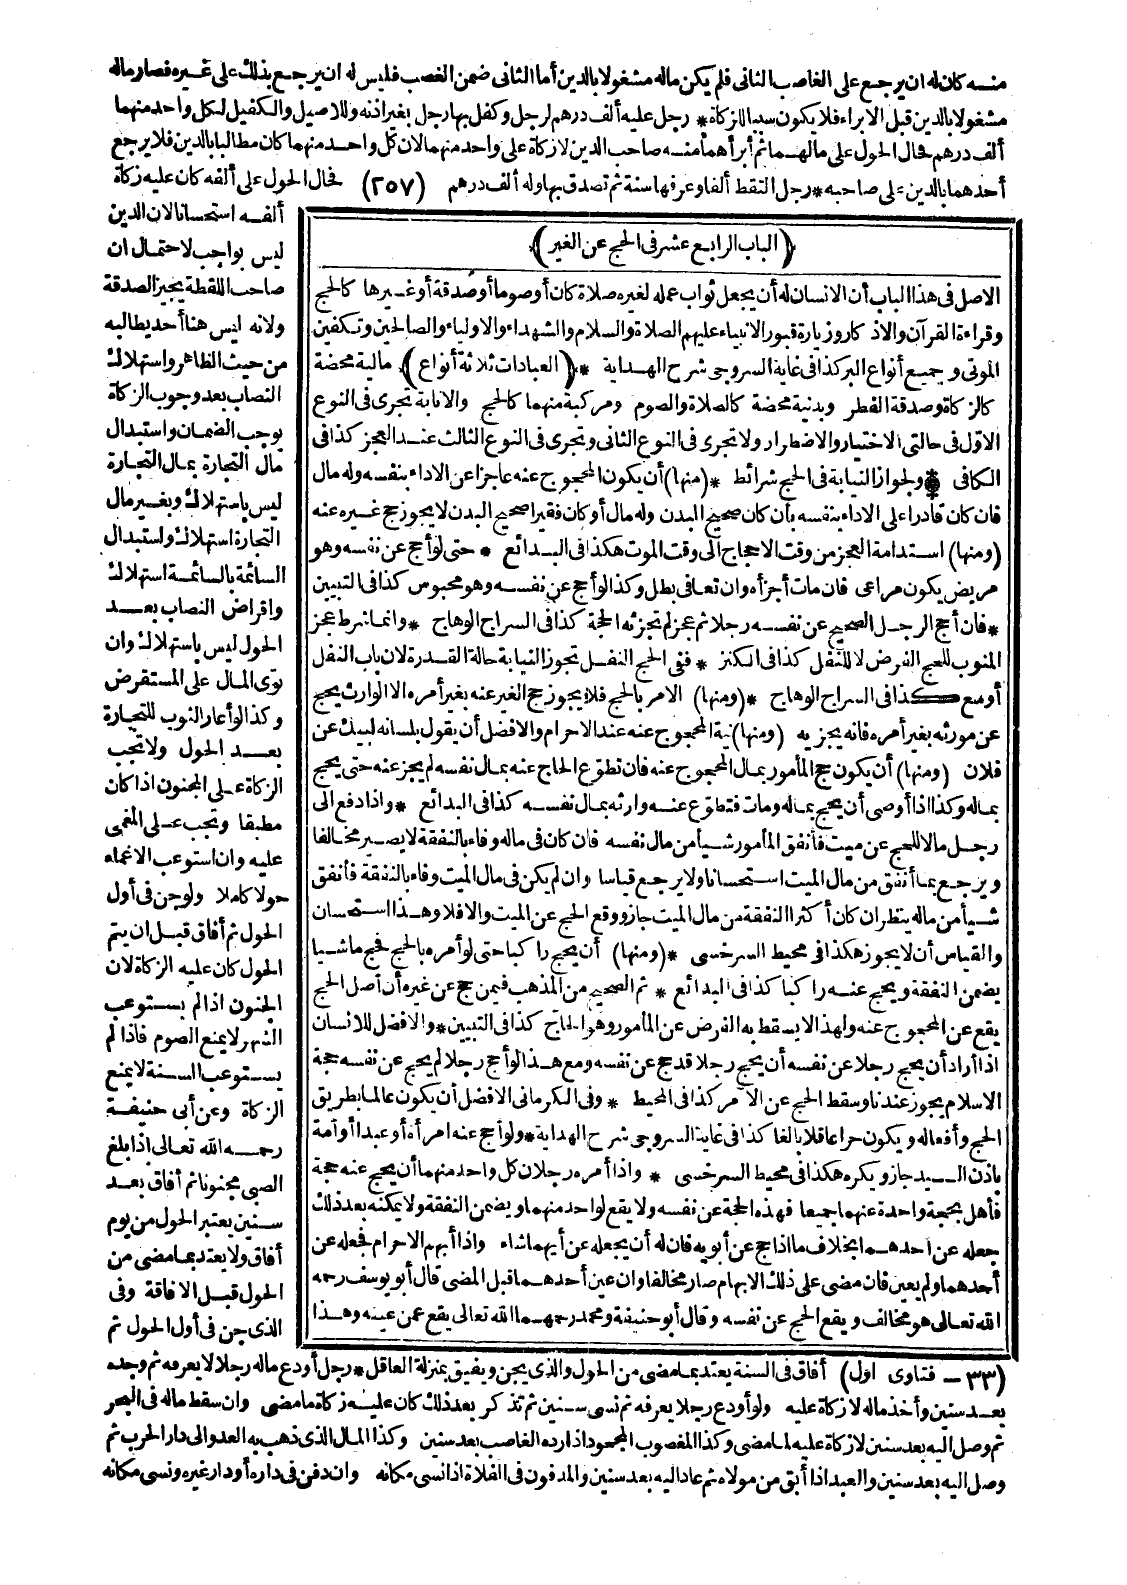 منه كان له ان يرجع على الغاصب الثاني فلم يكن ماله مشغولا بالدين أما الثاني ضمن الغصب فليس له ان يرجع بذلك على غيره فصار ماله
مشغولا بالدين قبل الابراء فلا يكون سببا للزكاة * رجل عليه ألف درهم لرجل وكفل بها رجل بغير اذنه وللاصيل والكفيل لكل واحد منهما
ألف درهم فحال الحول على مالهما ثم أبرأهما منه صاحب الدين لا زكاة على واحد منهما لان كل واحد منهما كان مطالبا بالدين فلا يرجع
أحدهما بالدين على صاحبه * رجل التقط ألفا وعرفها سنة ثم تصدق بها وله ألف درهم (٢٥٧) فحال الحول على ألفه كان عليه زكاة
ألفه استحسانا لان الدين
ليس بواجب لاحتمال ان
صاحب اللقطة يجيز الصدقة
ولانه ليس هنا أحد يطالبه
من حيث الظاهر واستهلاك
النصاب بعد وجوب الزكاة
يوجب الضمان واستبدال
مال التجارة بمال التجارة
ليس باستهلاك وبغير مال
التجارة استهلاك واستبدال
السائمة بالسائمة استهلاك
واقراض النصاب بعد
الحول ليس باستهلاك وان
توى المال على المستقرض
وكذا لو أعار الثوب للتجارة
بعد الحول ولا تجب
الزكاة على المجنون اذا كان
مطبقا وتجب على المغمى
عليه وان استوعب الاغماء
حولا كاملا ولو جن في أول
الحول ثم أفاق قبل ان يتم
الحول كان عليه الزكاة لان
الجنون اذا لم يستوعب
الشهر لا يمنع الصوم فاذا لم
يستوعب السنة لا يمنع
الزكاة وعن أبي حنيفة
رحمه الله تعالى اذا بلغ
الصبي مجنونا ثم أفاق بعد
سنين يعتبر الحول من يوم
أفاق ولا يعتد بما مضى من
الحول قبل الافاقة وفي
الذي جن في أول الحول ثم
(الباب الرابع عشر في الحج عن الغير)
الاصل في هذا الباب أن الانسان له أن يجعل ثواب عمله لغيره صلاة كان أو صوما أو صدقة أو غيرها كالحج
وقراءة القرآن والاذكار وزيارة قبور الانبياء عليهم الصلاة والسلام والشهداء والاولياء والصالحين وتكفين
الموتى وجميع أنواع البر كذا في غاية السروجي شرح الهداية * (العبادات ثلاثة أنواع) مالية محضة
كالزكاة وصدقة الفطر وبدنية محضة كالصلاة والصوم ومركبة منهما كالحج والانابة تجرى في النوع
الاول في حالتي الاختيار والاضطرار ولا تجرى في النوع الثاني وتجرى في النوع الثالث عند العجز كذا في
الكافي * ولجواز النيابة في الحج شرائط * (منها) أن يكون المحجوج عنه عاجزا عن الاداء بنفسه وله مال
فان كان قادرا على الاداء بنفسه بأن كان صحيح البدن وله مال أو كان فقيرا صحيح البدن لا يجوز حج غيره عنه
(ومنها) استدامة العجز من وقت الاحجاج الى وقت الموت هكذا في البدائع * حتى لو أحج عن نفسه وهو
مريض يكون مراعى فان مات أجزأه وان تعافى بطل وكذا لو أحج عن نفسه وهو محبوس كذا في التبيين
* فان أحج الرجل الصحيح عن نفسه رجلا ثم عجز لم تجزئه الحجة كذا في السراج الوهاج * وانما شرط عجز
المنوب للحج الفرض لا للنفل كذا في الكنز * ففي الحج النفل تجوز النيابة حالة القدرة لان باب النفل
أوسع كذا في السراج الوهاج * (ومنها) الامر بالحج فلا يجوز حج الغير عنه بغير أمره الا الوارث يحج
عن مورثه بغير أمره فانه يجزيه (ومنها) نية المحجوج عنه عند الاحرام والافضل أن يقول بلسانه لبيك عن
فلان (ومنها) أن يكون حج المأمور بمال المحجوج عنه فان تطوع الحاج عنه بمال نفسه لم يجز عنه حتى يحج
بماله وكذا اذا أوصى أن يحج بماله ومات فتطوع عنه وارثه بمال نفسه كذا في البدائع * واذا دفع الى
رجل مالا للحج عن ميت فأنفق المأمور شيأ من مال نفسه فان كان في ماله وفاء بالنفقة لا يصير مخالفا
ويرجع بما أنفق من مال الميت استحسانا ولا يرجع قياسا وان لم يكن في مال الميت وفاء بالنفقة فأنفق
شيأ من ماله ينظر ان كان أكثر النفقة من مال الميت جاز ووقع الحج عن الميت والا فلا وهذا استحسان
والقياس أن لا يجوز هكذا في محيط السرخسي * (ومنها) أن يحج راكبا حتى لو أمره بالحج فحج ماشيا
يضمن النفقة ويحج عنه راكبا كذا في البدائع * ثم الصحيح من المذهب فيمن حج عن غيره أن أصل الحج
يقع عن المحجوج عنه ولهذا لا يسقط به الفرض عن المأمور وهو الحاج كذا في التبيين * والافضل للانسان
اذا أراد أن يحج رجلا عن نفسه أن يحج رجلا قد حج عن نفسه ومع هذا لو أحج رجلا لم يحج عن نفسه حجة
الاسلام يجوز عندنا وسقط الحج عن الآمر كذا في المحيط * وفي الكرماني الافضل أن يكون عالما بطريق
الحج وأفعاله ويكون حرا عاقلا بالغا كذا في غاية السروجي شرح الهداية * ولو أحج عنه امرأة أو عبدا أو أمة
باذن السيد جاز ويكره هكذا في محيط السرخسي * واذا أمره رجلان كل واحد منهما أن يحج عنه حجة
فأهل بحجة واحدة عنهما جميعا فهذه الحجة عن نفسه ولا يقع لواحد منهما ويضمن النفقة ولا يمكنه بعد ذلك
جعله عن أحدهما بخلاف ما اذا حج عن أبويه فان له أن يجعله عن أيهما شاء واذا أبهم الاحرام فجعله عن
أحدهما ولم يعين فان مضى على ذلك الابهام صار مخالفا وان عين أحدهما قبل المضى قال أبو يوسف رحمه
الله تعالى هو مخالف ويقع الحج عن نفسه وقال أبو حنيفة ومحمد رحمهما الله تعالى يقع عمن عينه وهذا
(٣٣ - فتاوى اول) أفاق في السنة يعتد بما مضى من الحول والذي يجن ويفيق بمنزلة العاقل * رجل أودع ماله رجلا لا يعرفه ثم وجده
بعد سنين وأخذ ماله لا زكاة عليه ولو أودع رجلا يعرفه ثم نسى سنين ثم تذكر بعد ذلك كان عليه زكاة ما مضى وان سقط ماله في البحر
ثم وصل اليه بعد سنين لا زكاة عليه لما مضى وكذا المغصوب المجحود اذا رده الغاصب بعد سنين وكذا المال الذي ذهب به العدو الى دار الحرب ثم
وصل اليه بعد سنين والعبد اذا أبق من مولاه ثم عاد اليه بعد سنين والمدفون في الفلاة اذا نسى مكانه وان دفن في داره أو دار غيره ونسى مكانه